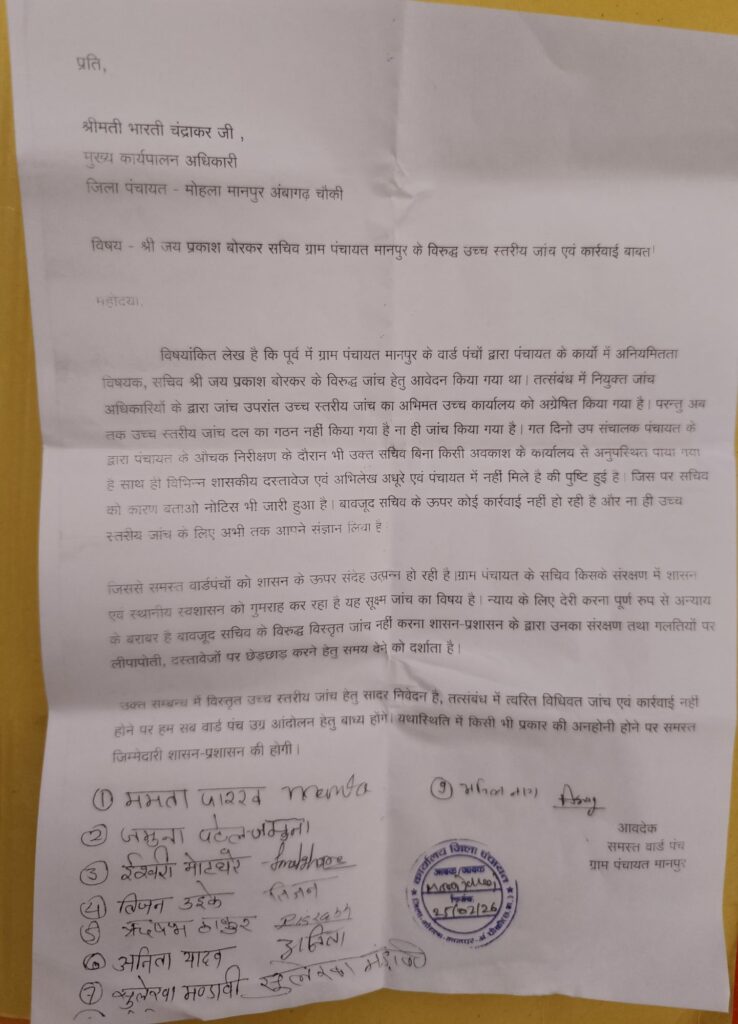 प्रति,
श्रीमती भारती चंद्राकर जी ,
मुख्य कार्यपालन अधिकारी
जिला पंचायत - मोहला मानपुर अंबागढ़ चौकी
विषय - श्री जय प्रकाश बोरकर सचिव ग्राम पंचायत मानपुर के विरुद्ध उच्च स्तरीय जांच एवं कार्रवाई बाबत।
महोदया,
विषयांकित लेख है कि पूर्व में ग्राम पंचायत मानपुर के वार्ड पंचों द्वारा पंचायत के कार्यो में अनियमितता
विषयक, सचिव श्री जय प्रकाश बोरकर के विरुद्ध जांच हेतु आवेदन किया गया था। तत्संबंध में नियुक्त जांच
अधिकारियों के द्वारा जांच उपरांत उच्च स्तरीय जांच का अभिमत उच्च कार्यालय को अग्रेषित किया गया है। परन्तु अब
तक उच्च स्तरीय जांच दल का गठन नहीं किया गया है ना ही जांच किया गया है। गत दिनो उप संचालक पंचायत के
द्वारा पंचायत के औचक निरीक्षण के दौरान भी उक्त सचिव बिना किसी अवकाश के कार्यालय से अनुपस्थित पाया गया
है साथ ही विभिन्न शासकीय दस्तावेज एवं अभिलेख अधूरे एवं पंचायत में नहीं मिले है की पुष्टि हुई है। जिस पर सचिव
को कारण बताओ नोटिस भी जारी हुआ है। बावजूद सचिव के ऊपर कोई कार्रवाई नहीं हो रही है और ना ही उच्च
स्तरीय जांच के लिए अभी तक आपने संज्ञान लिया है
जिससे समस्त वार्डपंचों को शासन के ऊपर संदेह उत्पन्न हो रही है।ग्राम पंचायत के सचिव किसके संरक्षण में शासन
एवं स्थानीय स्वशासन को गुमराह कर रहा है यह सूक्ष्म जांच का विषय है। न्याय के लिए देरी करना पूर्ण रुप से अन्याय
के बराबर है बावजूद सचिव के विरुद्ध विस्तृत जांच नहीं करना शासन-प्रशासन के द्वारा उनका संरक्षण तथा गलतियों पर
लीपापोती, दस्तावेजों पर छेड़छाड़ करने हेतु समय देने को दर्शाता है।
उक्त सम्बन्ध में विस्तृत उच्च स्तरीय जांच हेतु सादर निवेदन है, तत्संबंध में त्वरित विधिवत जांच एवं कार्रवाई नहीं
होने पर हम सब वार्ड पंच उग्र आंदोलन हेतु बाध्य होंगे। यथास्थिति में किसी भी प्रकार की अनहोनी होने पर समस्त
जिम्मेदारी शासन-प्रशासन की होगी।
① ममता पारख
② जमुना पटेल जमुना
③ ईश्वरी
④ तिजन उइके तिजन
⑤ ऋषभ ठाकुर
⑥ अनिता यादव अनिता
⑦ सुलेखा मण्डावी सुलेखा मंडावी
⑨
आवदेक
समस्त वार्ड पंच
ग्राम पंचायत मानपुर
कार्यालय जिला पंचायत
आवक/जावक
दिनांक
25/02/26